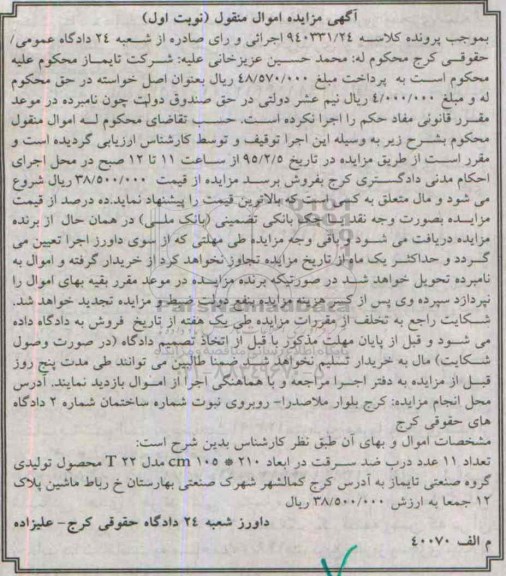 آگهی مزایده اموال منقول (نوبت اول)
بموجب پرونده کلاسه ۹۴۰۳۳۱/۲۴ اجرائی و رای صادره از شعبه ۲۴ دادگاه عمومی/
حقوقی کرج محکوم له: محمد حسین عزیزخانی علیه: شرکت تایماز محکوم علیه
محکوم است به پرداخت مبلغ ۴۸/۵۷۰/۰۰۰ ریال بعنوان اصل خواسته در حق محکوم
له و مبلغ ۴/۰۰۰/۰۰۰ ریال نیم عشر دولتی در حق صندوق دولت چون نامبرده در موعد
مقرر قانونی مفاد حکم را اجرا نکرده است. حسب تقاضای محکوم له اموال منقول
محکوم بشرح زیر به وسیله این اجرا توقیف و توسط کارشناس ارزیابی گردیده است و
مقرر است از طریق مزایده در تاریخ ۹۵/۲/۵ از ساعت ۱۱ تا ۱۲ صبح در محل اجرای
احکام مدنی دادگستری کرج بفروش برسد مزایده از قیمت ۳۸/۵۰۰/۰۰۰ ریال شروع
می شود و مال متعلق به کسی است که بالاترین قیمت را پیشنهاد نماید.ده درصد از قیمت
مزایده بصورت وجه نقد یا چک بانکی تضمینی (بانک ملی) در همان حال از برنده
مزایده دریافت می شود و باقی وجه مزایده طی مهلتی که از سوی داورز اجرا تعیین می
گردد و حداکثر یک ماه از تاریخ مزایده تجاوز نخواهد کرد از خریدار گرفته و اموال به
نامبرده تحویل خواهد شد در صورتیکه برنده مزایده در موعد مقرر بقیه بهای اموال را
نپردازد سپرده وی پس از کسر هزینه مزایده بنفع دولت ضبط و مزایده تجدید خواهد شد.
شکایت راجع به تخلف از مقررات مزایده طی یک هفته از تاریخ فروش به دادگاه داده
می شود و قبل از پایان مهلت مذکور یا قبل از اتخاذ تصمیم دادگاه (در صورت وصول
شکایت) مال به خریدار تسلیم نخواهد شد. طالبین می توانند طی مدت پنج روز
قبل از مزایده به دفتر اجرا مراجعه و با هماهنگی اجرا از اموال بازدید نمایند. آدرس
محل انجام مزایده: کرج بلوار ملاصدرا- روبروی نبوت شماره ساختمان شماره ۲ دادگاه
های حقوقی کرج
مشخصات اموال و بهای آن طبق نظر کارشناس بدین شرح است:
تعداد ۱۱ عدد درب ضد سرقت در ابعاد ۲۱۰ * ۱۰۵ cm مدل T ۲۲ محصول تولیدی
گروه صنعتی تایماز به آدرس کرج کمالشهر شهرک صنعتی بهارستان خ رباط ماشین پلاک
۱۲ جمعا به ارزش ۳۸/۵۰۰/۰۰۰ ریال
داورز شعبه ۲۴ دادگاه حقوقی کرج- علیزاده
م الف ۴۰۰۷۰